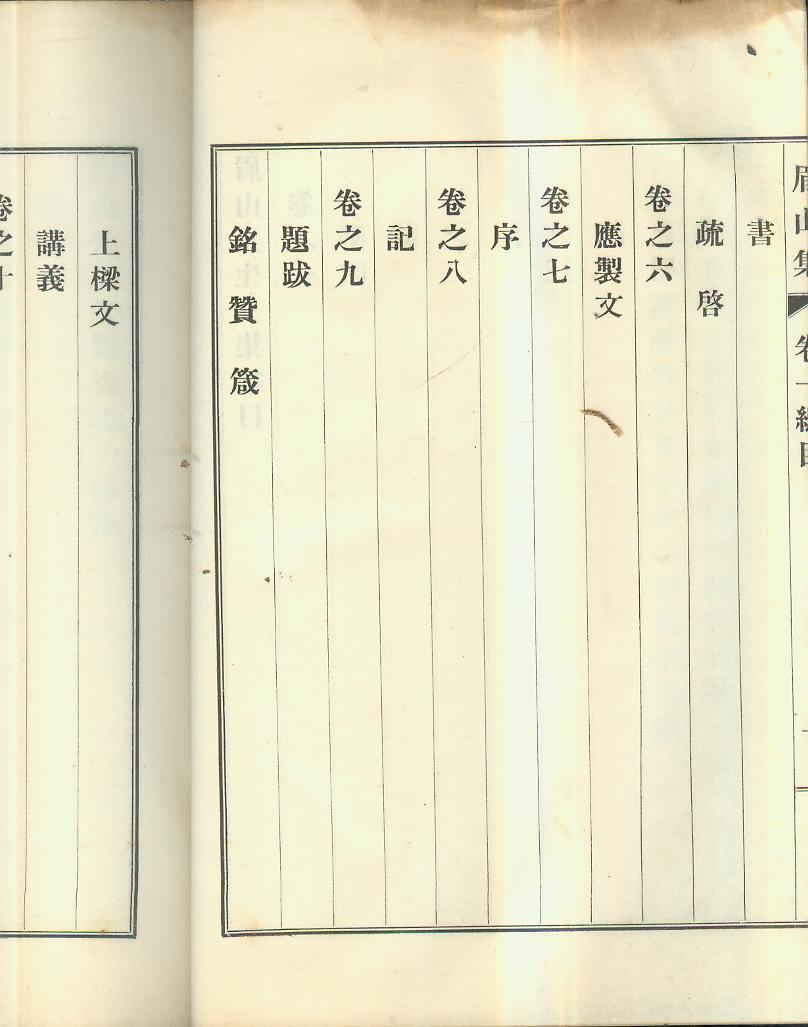 眉山集 卷一總目
書
疏啓
卷之六
應製文
卷之七
序
卷之八
記
卷之九
題跋
銘贊箴
上樑文
講義
卷之十